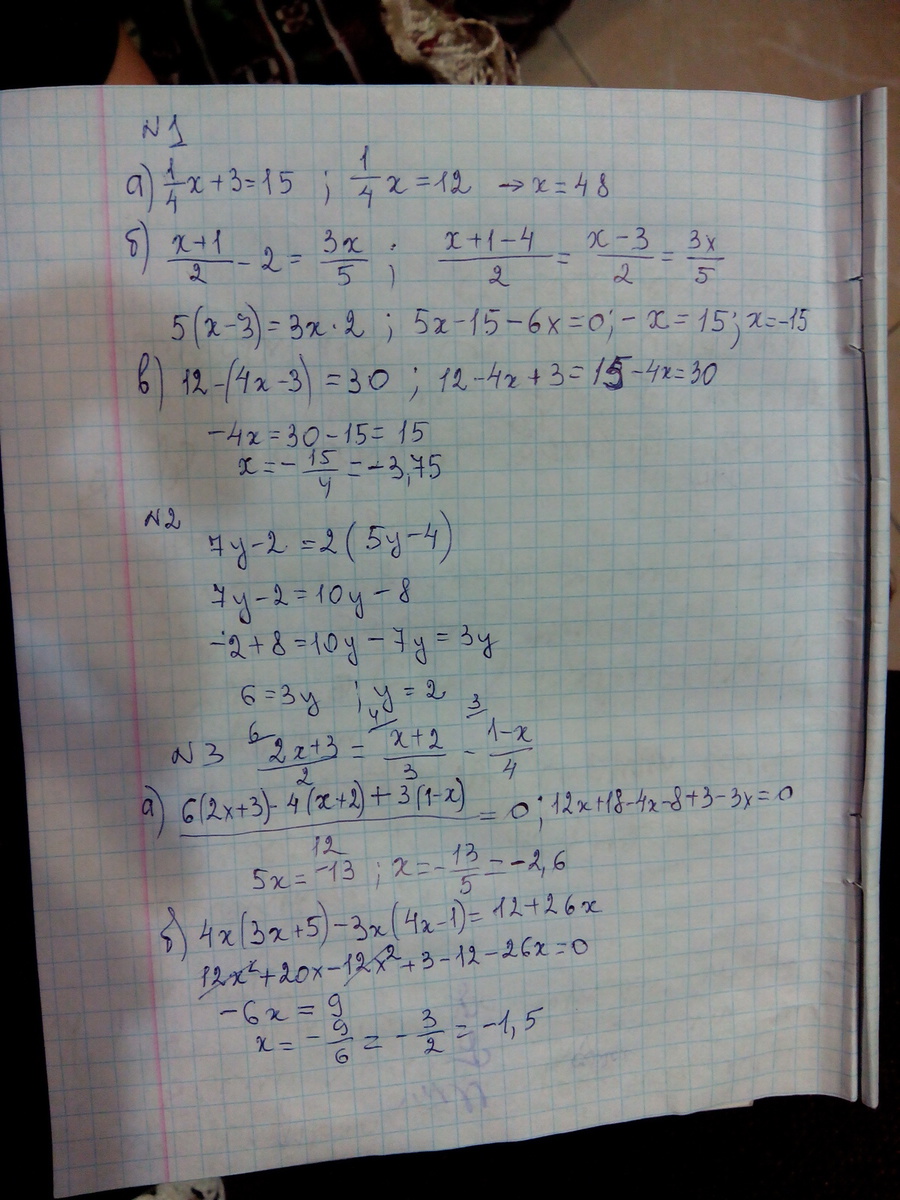 №1
а) 1/4 x + 3 = 15 ; 1/4 x = 12 → x = 48
б) (x+1)/2 - 2 = 3x/5 ; (x+1-4)/2 = (x-3)/2 = 3x/5
5(x-3) = 3x·2 ; 5x-15-6x=0; -x=15; x=-15
в) 12-(4x-3) = 30 ; 12-4x+3 = 15-4x=30
-4x = 30-15 = 15
x = -15/4 = -3,75
№2
7y-2 = 2(5y-4)
7y-2 = 10y-8
-2+8 = 10y-7y = 3y
6 = 3y ; y = 2
№3 6 (2x+3)/2 = 4 (x+2)/3 - 3 (1-x)/4
а) (6(2x+3)-4(x+2)+3(1-x))/12 = 0; 12x+18-4x-8+3-3x=0
5x = -13 ; x = -13/5 = -2,6
б) 4x(3x+5)-3x(4x-1) = 12+26x
12x²+20x-12x²+3-12-26x=0
-6x = 9
x = -9/6 = -3/2 = -1,5